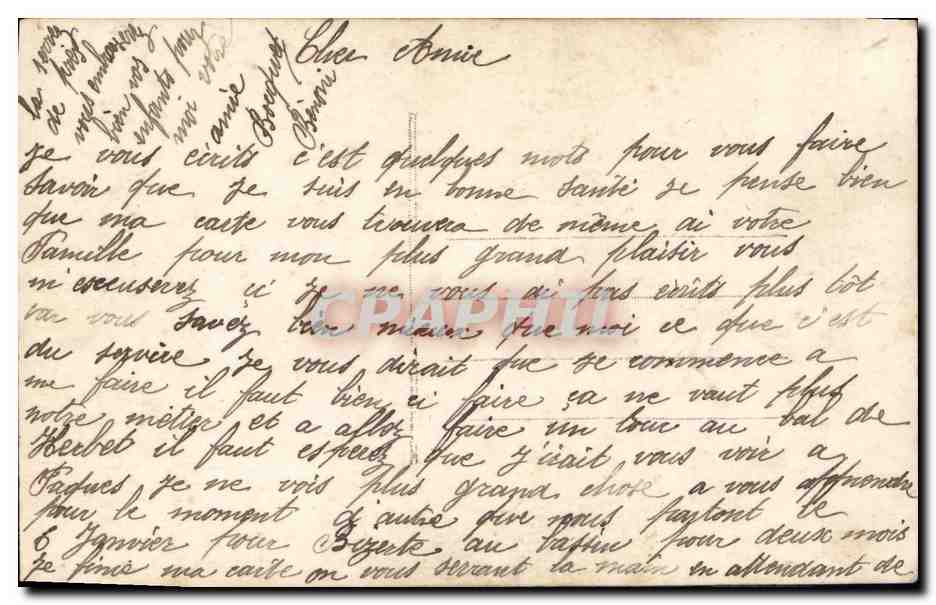 Cher Amie
Je vous écrits c'est quelques mots pour vous faire
savoir que je suis en bonne santé je pense bien
que ma carte vous trouvera de même ai votre
Famille pour mon plus grand plaisir vous
m'excuserez ci je ne vous ai pas écrits plus tôt
car vous savez bien mieux que moi ce que c'est
du service je vous dirait que je commence a
me faire il faut bien ci faire ça ne vaut plus
notre métier et a allez faire un tour au bal de
Kerbet il faut esperez que j'irait vous voir a
Paques je ne vois plus grand chose a vous apprendre
pour le moment d'autre que nous partont le
6 Janvier pour Bizerte au bassin pour deux mois
Je finie ma carte en vous serrant la main en attendant de
la serrez
de près
vous embrasserez
bien vos
enfants pour
moi votre
amie
Bocquet
CPARAMA